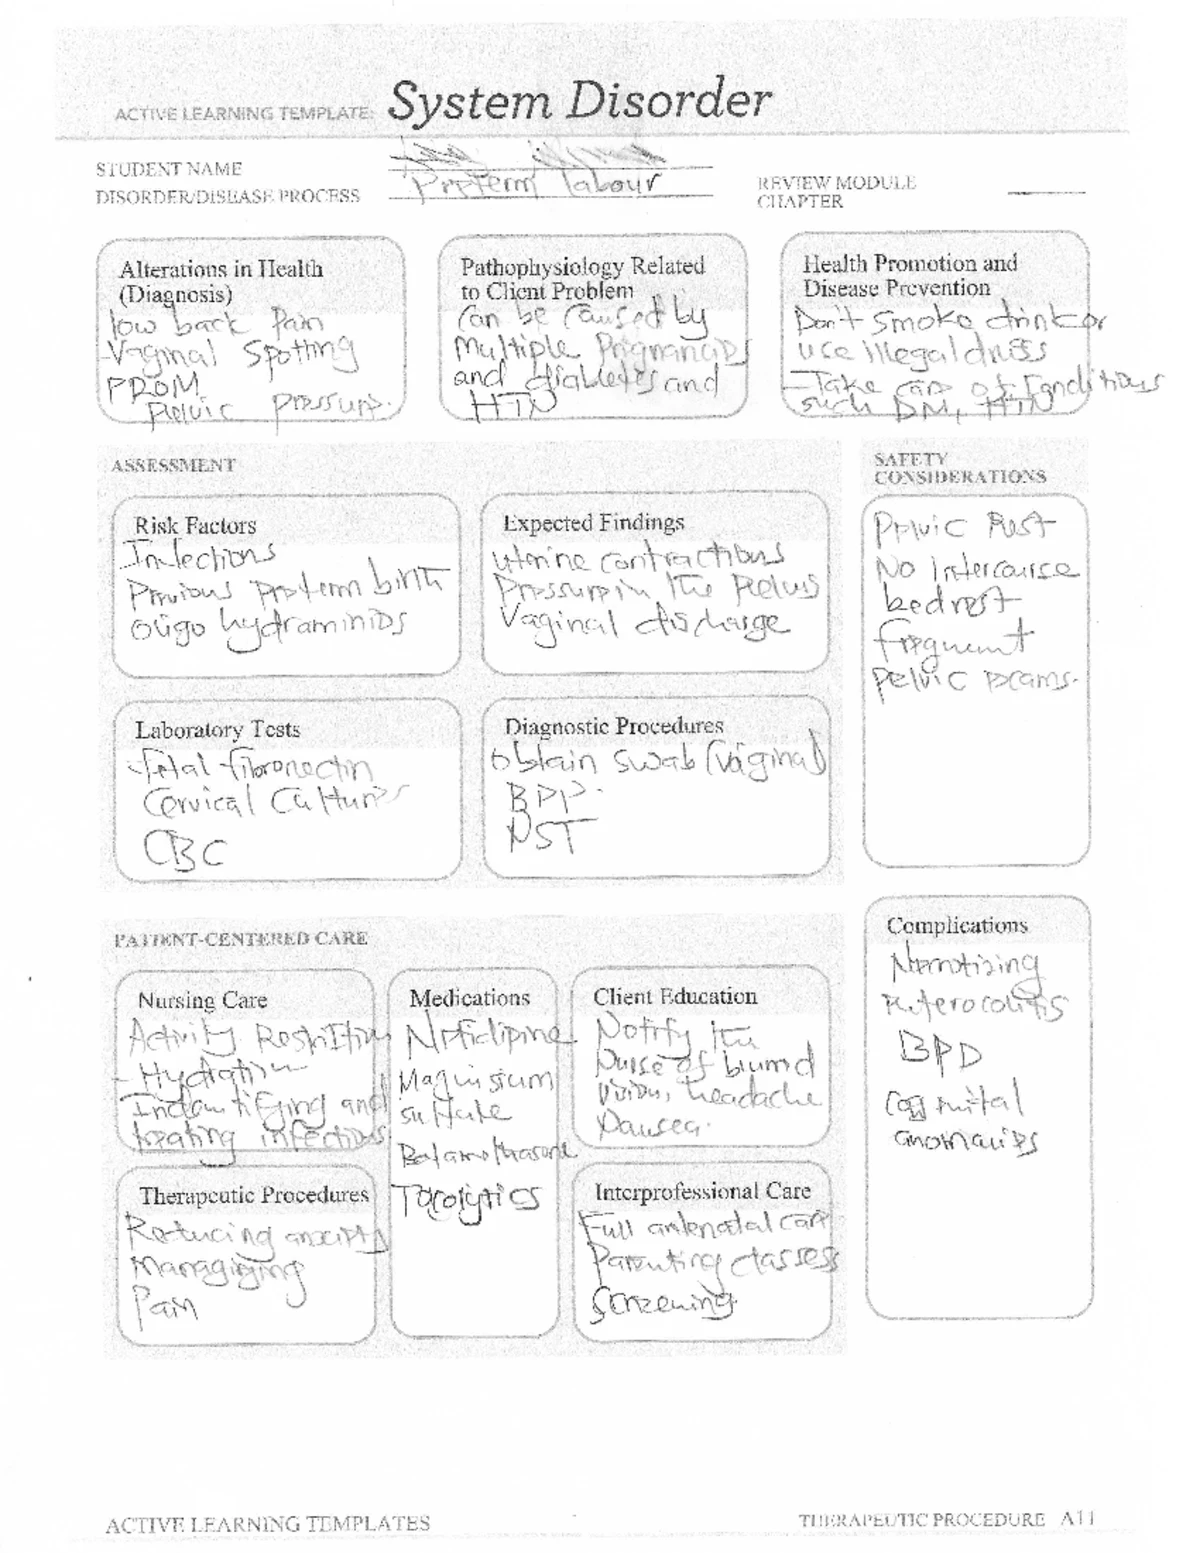 ACTIVE LEARNING TEMPLATE: System Disorder
STUDENT NAME
DISORDER/DISEASE PROCESS Preterm labour
REVIEW MODULE
CHAPTER
Alterations in Health
(Diagnosis)
low back Pain
-Vaginal Spotting
PROM
Pelvic pressure.
Pathophysiology Related
to Client Problem
Can be caused by
Multiple Prignancies
and diabletes and
HTN
Health Promotion and
Disease Prevention
Don't smoke drink or
use illegal drugs
-Take care of Conditions
such DM, HTN
ASSESSMENT
Risk Factors
Infections
Previous preterm birth
Oligo hydraminios
Expected Findings
uterine contractions
Pressure in the Pelvis
Vaginal discharge
SAFETY
CONSIDERATIONS
Pelvic Rest
No Intercourse
bedrest
frequent
pelvic exams.
Laboratory Tests
-Fetal fibronectin
Cervical Cultures
CBC
Diagnostic Procedures
obtain swab (vaginal)
BPP.
NST
PATIENT-CENTERED CARE
Nursing Care
Activity Restriction
- Hydration
Indentifying and
treating infections
Medications
Nifidipine
Magnisium
sulfate
Betamethasone
Tocolytics
Client Education
Notify the
Nurse of blurred
vision, headache
Nausea.
Complications
Necrotizing
enterocolitis
BPD
Congenital
anomalies
Therapeutic Procedures
Reducing anxiety
Managing
Pain
Interprofessional Care
Full antenatal care
Parenting classess
Screening.
ACTIVE LEARNING TEMPLATES
THERAPEUTIC PROCEDURE A11